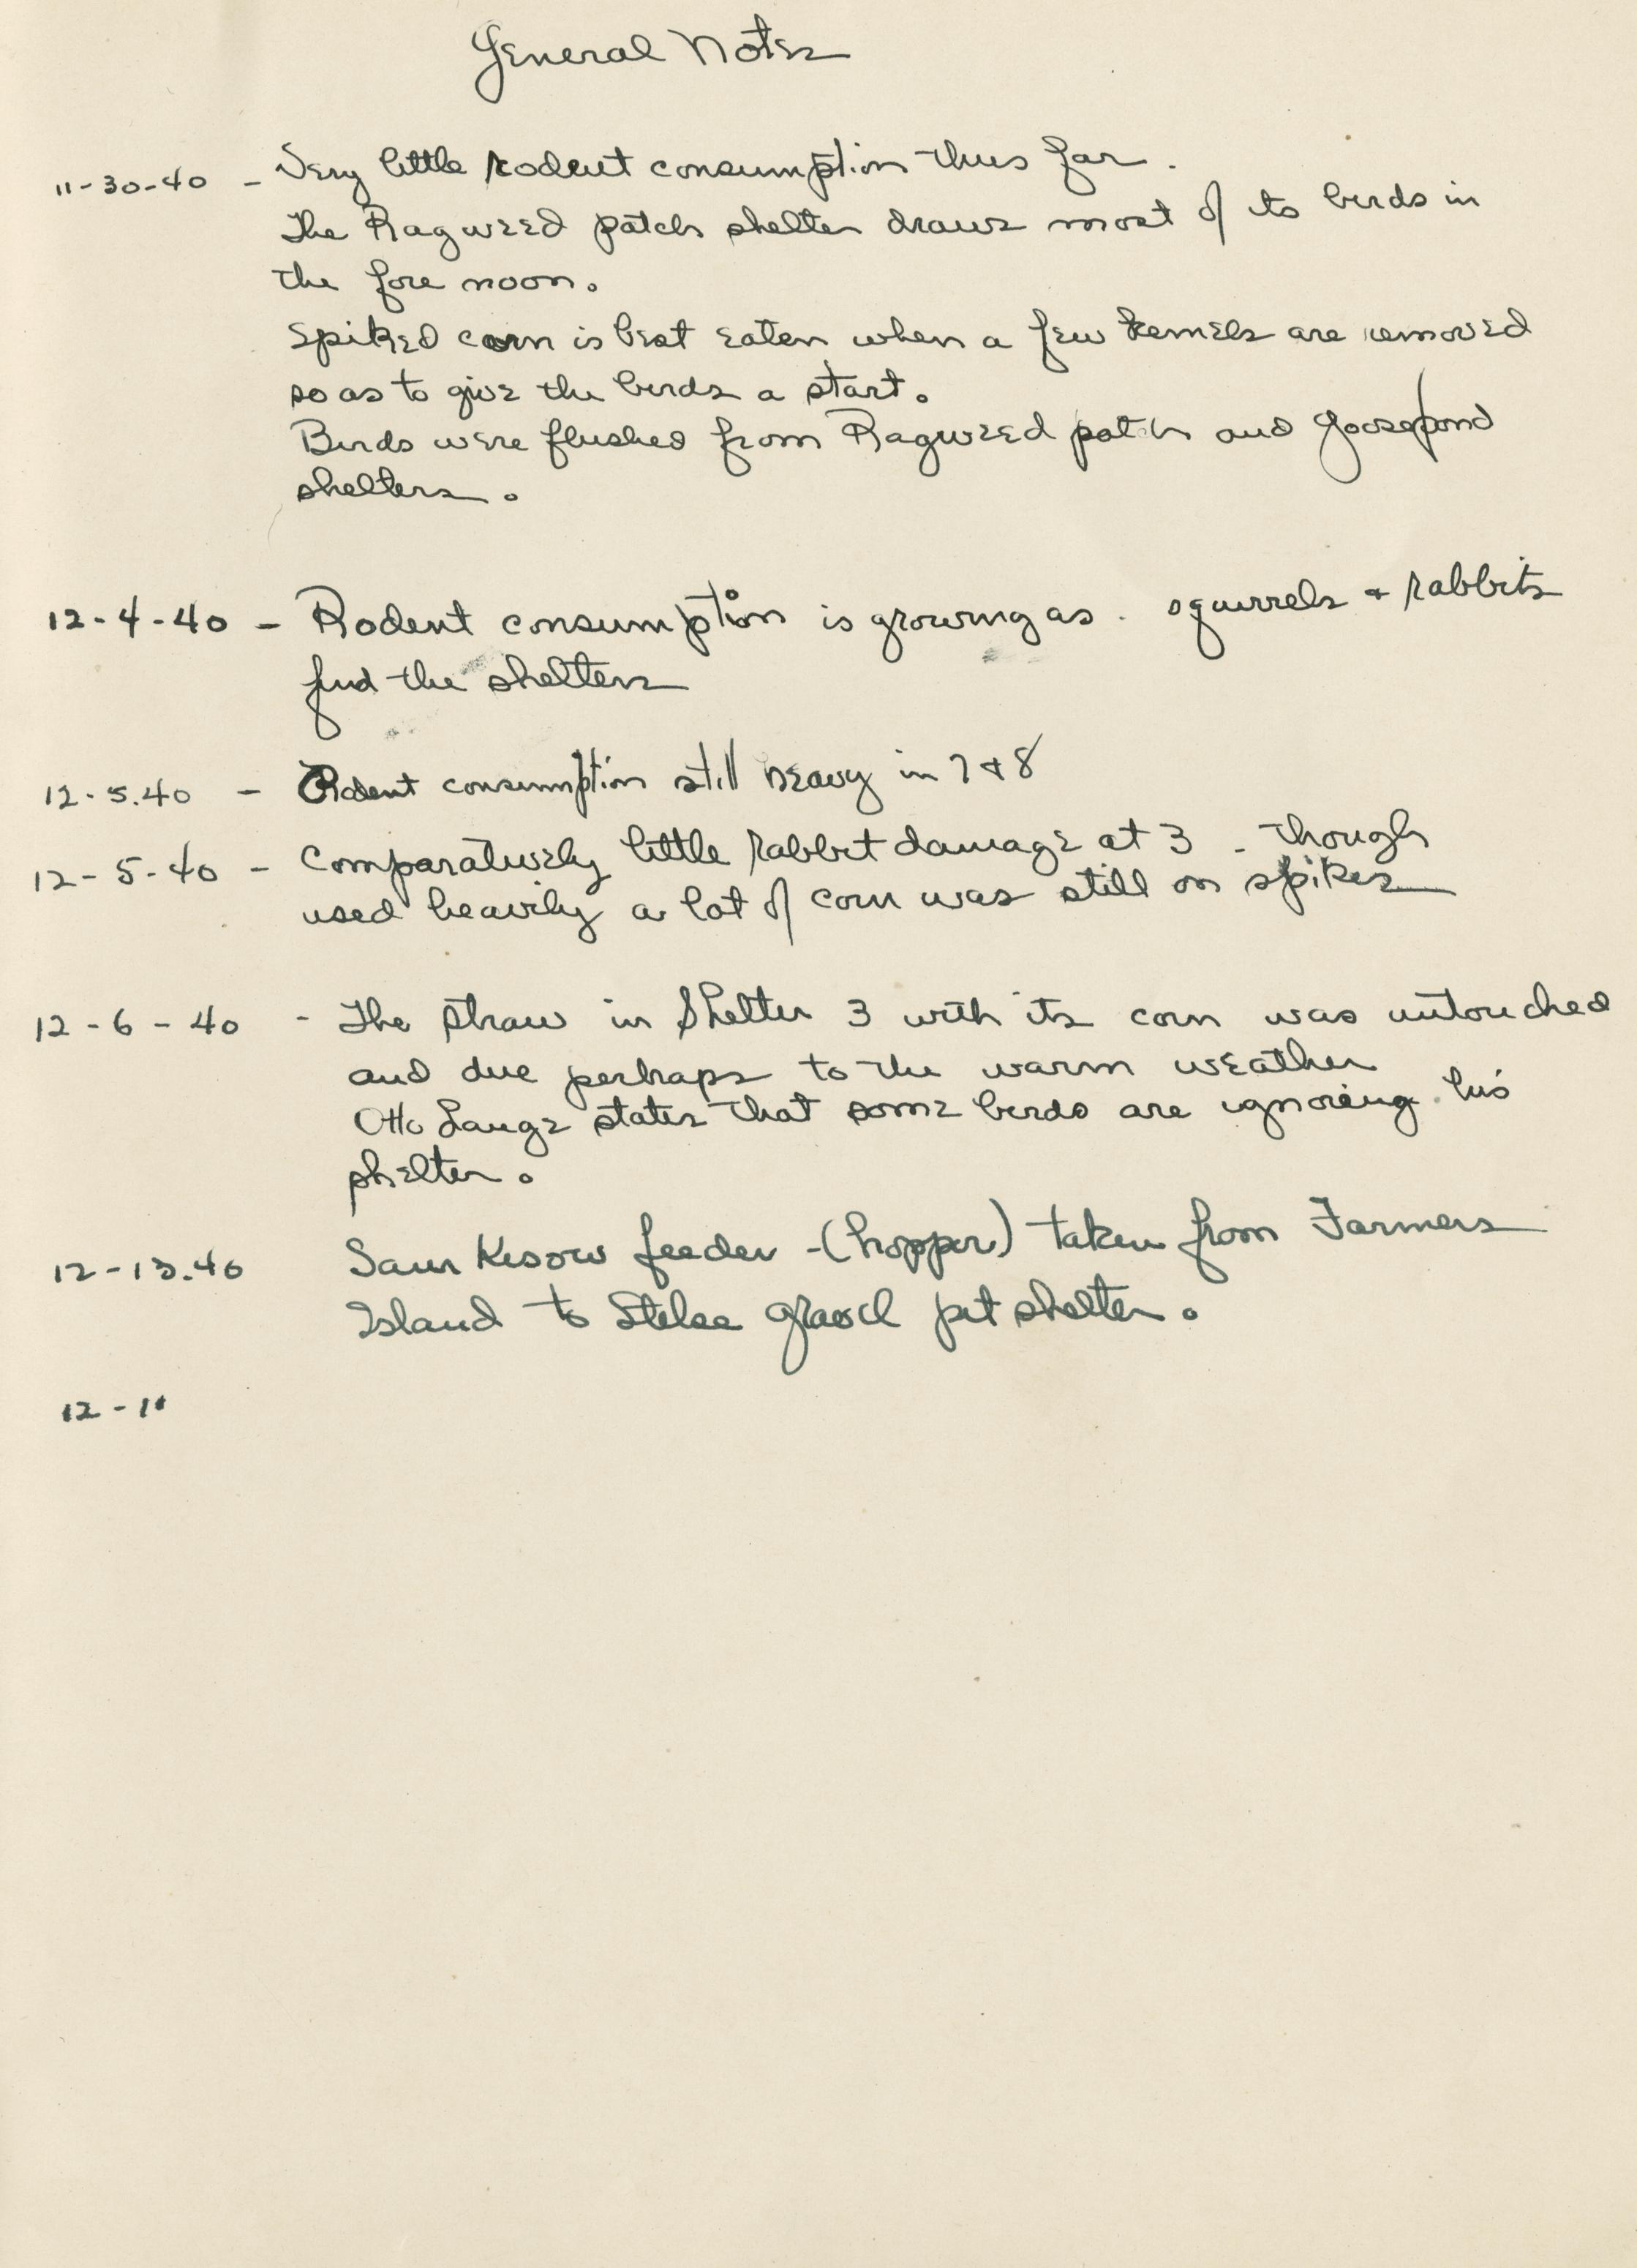 General Notes
11-30-40 - Very little rodent consumption thus far.
The Ragweed patch shelter draws most of its birds in
the fore noon.
Spiked corn is best eaten when a few kernels are removed
so as to give the birds a start.
Birds were flushed from Ragweed patch and Goosepond
shelters.
12-4-40 - Rodent consumption is growing as squirrels + rabbits
find the shelters
12-5-40 - Rodent consumption still heavy in 7 + 8
12-5-40 - Comparatively little rabbit damage at 3 - though
used heavily a lot of corn was still on spikes
12-6-40 - The straw in Shelter 3 with its corn was untouched
and due perhaps to the warm weather
Otto Lange states that some birds are ignoring his
shelter.
12-13-40 Sam Kisow feeder - (hopper) taken from Farmers
Island to gravel pit shelter.
12-1